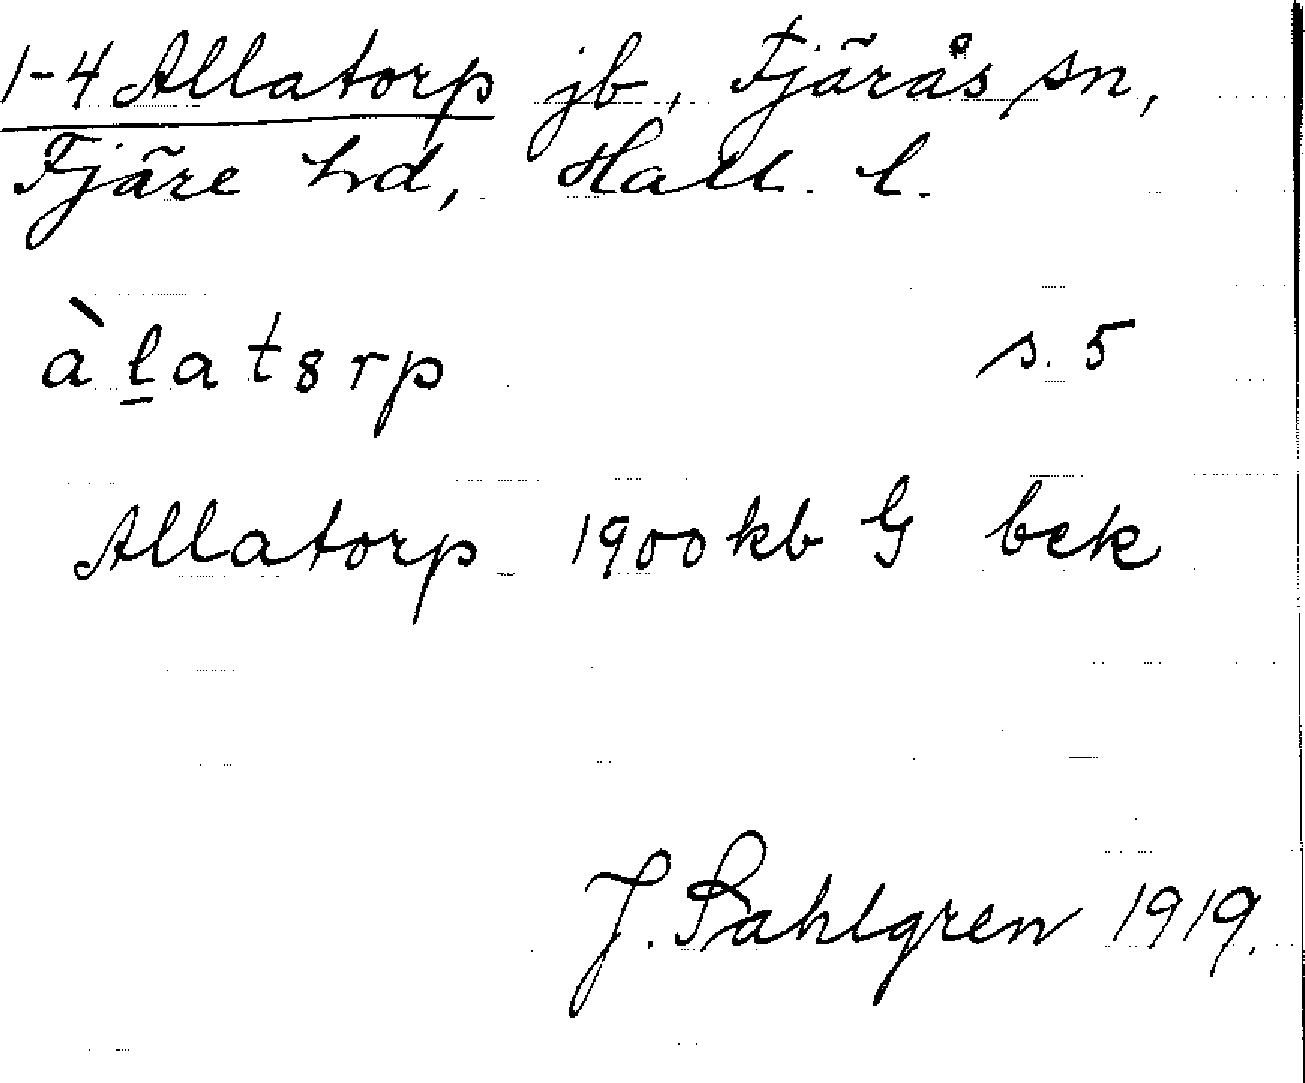 1-4 Allatorp jb, Fjärås sn,
Fjäre hd, Hall. l.
àl̠at8rp s. 5
Allatorp 1900 kb G bek
J. Sahlgren 1919.